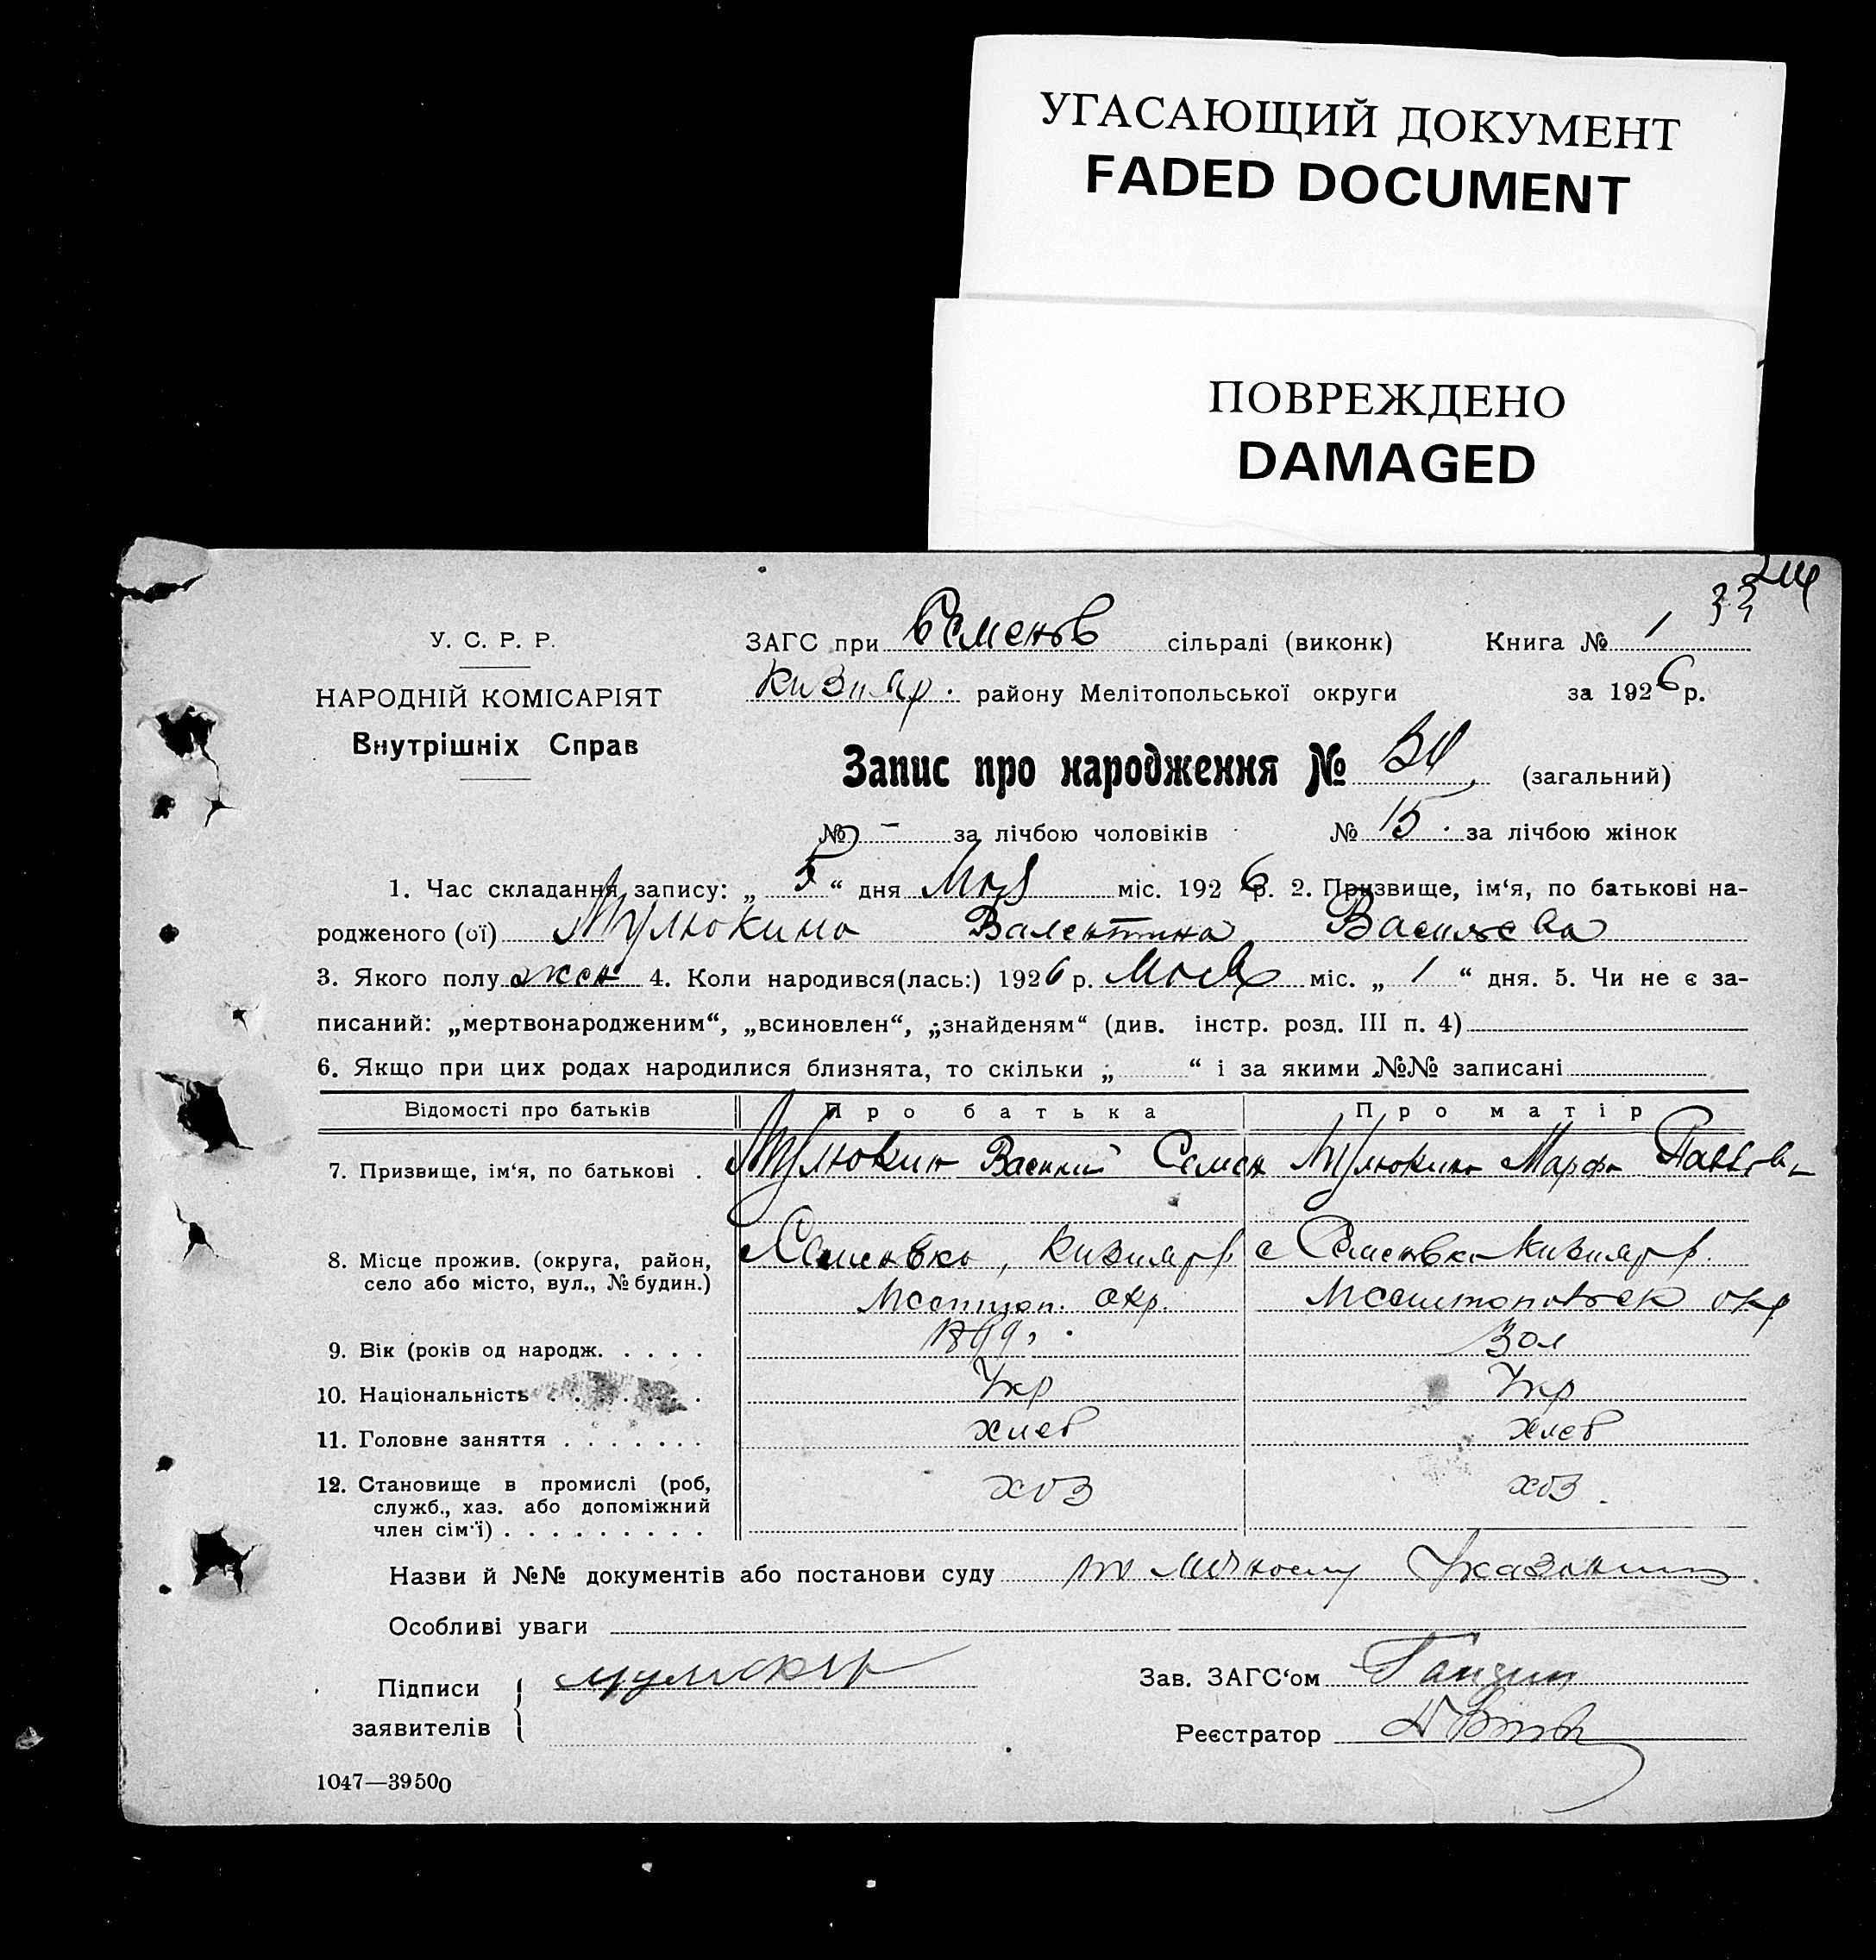 УГАСАЮЩИЙ ДОКУМЕНТ
FADED DOCUMENT
ПОВРЕЖДЕНО
DAMAGED
33
У. С. Р. Р.
НАРОДНІЙ КОМІСАРІЯТ
Внутрішніх Справ
ЗАГС при Семенов сільраді (виконк) Книга № 1
Кизияр. району Мелітопольської округи за 1926 р.
Запис про народження № (загальний)
№ - за лічбою чоловіків № 15. за лічбою жінок
1. Час складання запису: „ 5 “ дня Мая міс. 1926 р. 2. Призвище, ім‘я, по батькові на-
родженого (ої) Мулюкина Валентина Васильева
3. Якого полу жен 4. Коли народився(лась:) 1926 р. Мая міс. „ 1 “ дня. 5. Чи не є за-
писаний: „мертвонародженим“, „всиновлен“, „знайденям“ (див. інстр. розд. III п. 4)
6. Якщо при цих родах народилися близнята, то скільки „ “ і за якими №№ записані
Відомості про батьків Про батька Про матір
7. Призвище, ім‘я, по батькові . Мулюкин Василий Семен Мулюкина Марфа Павлов
8. Місце прожив. (округа, район, Семеновка, Кизияр р с Семеновка Кизияр р.
село або місто, вул., № будин.) Мелитоп. окр. Мелитопольск окр
9. Вік (років од народж. . . . . 1899 30л
10. Національність . . . . . . Укр Укр
11. Головне заняття . . . . . . . хлеб хлеб
12. Становище в промислі (роб, хоз хоз.
служб., хаз. або допоміжний
член сім‘ї) . . . . . . . . .
Назви й №№ документів або постанови суду по личному указанию
Особливі уваги
Підписи
заявителів
Зав. ЗАГС‘ом
Реєстратор
1047—39500